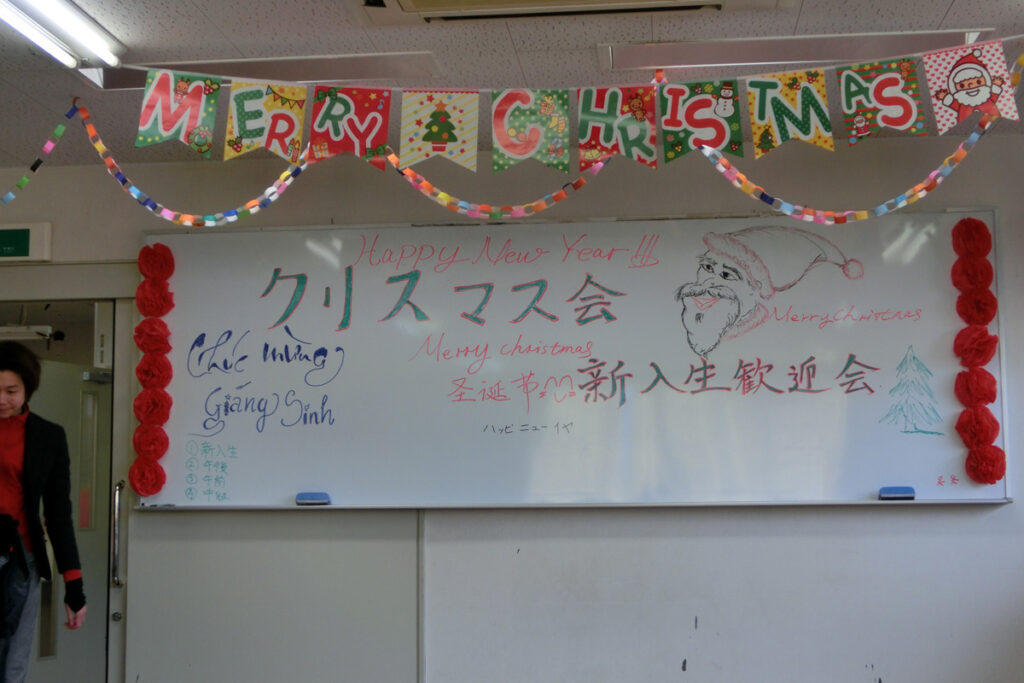 MERRY CHRISTMAS
Happy New Year!!!
クリスマス会
Merry Christmas
Merry christmas
Chúc mừng
Giáng Sinh
圣诞节
新入生歓迎会
ハッピ ニュー イヤ
① 新入生
② 午後
③ 午前
④ 中級